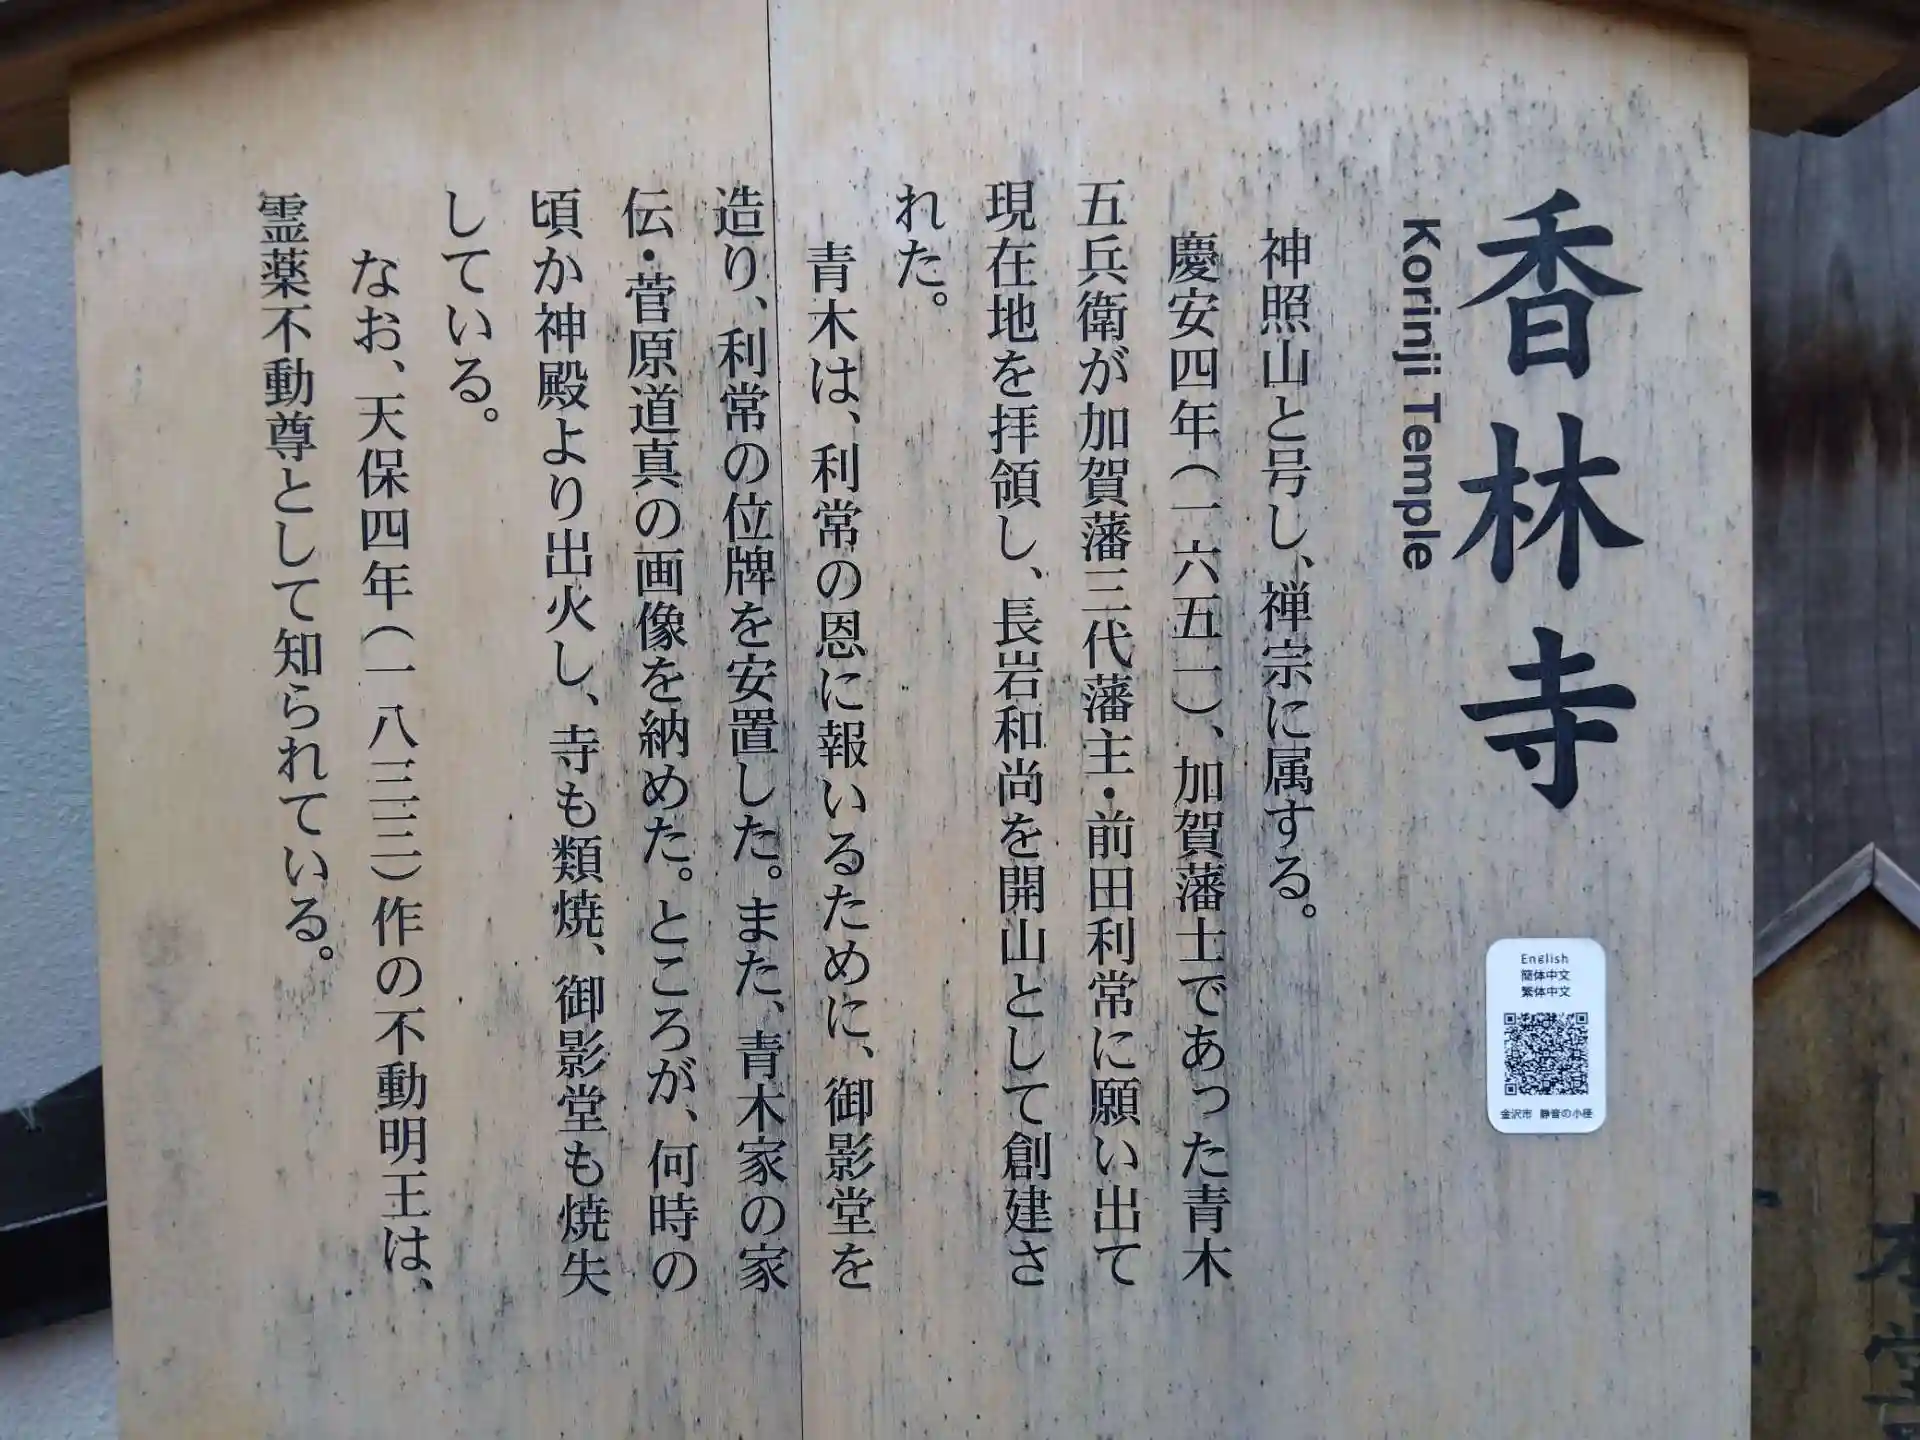 香林寺
Korinji Temple
神照山と号し、禅宗に属する。
慶安四年(一六五一)、加賀藩士であった青木
五兵衛が加賀藩三代藩主・前田利常に願い出て
現在地を拝領し、長岩和尚を開山として創建さ
れた。
青木は、利常の恩に報いるために、御影堂を
造り、利常の位牌を安置した。また、青木家の家
伝・菅原道真の画像を納めた。ところが、何時の
頃か神殿より出火し、寺も類焼、御影堂も焼失
している。
なお、天保四年(一八三三)作の不動明王は、
霊薬不動尊として知られている。
English
簡体中文
繁体中文
金沢市 静音の小径
本堂